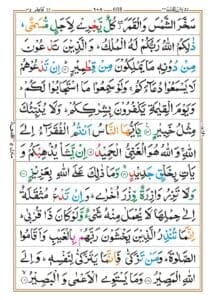 سَخَّرَ الشَّمْسَ وَالْقَمَرَ ۖ كُلٌّ يَّجْرِيْ لِاَجَلٍ مُّسَمًّى ؕ
ذٰلِكُمُ اللّٰهُ رَبُّكُمْ لَهُ الْمُلْكُ ؕ وَالَّذِيْنَ تَدْعُوْنَ
مِنْ دُوْنِهٖ مَا يَمْلِكُوْنَ مِنْ قِطْمِيْرٍ ۝ اِنْ تَدْعُوْهُمْ
لَا يَسْمَعُوْا دُعَآءَكُمْ ۚ وَلَوْ سَمِعُوْا مَا اسْتَجَابُوْا لَكُمْ ؕ
وَيَوْمَ الْقِيٰمَةِ يَكْفُرُوْنَ بِشِرْكِكُمْ ؕ وَلَا يُنَبِّئُكَ
مِثْلُ خَبِيْرٍ ۝ يٰٓاَيُّهَا النَّاسُ اَنْتُمُ الْفُقَرَآءُ اِلَى
اللّٰهِ ۚ وَاللّٰهُ هُوَ الْغَنِيُّ الْحَمِيْدُ ۝ اِنْ يَّشَاْ يُذْهِبْكُمْ
وَيَاْتِ بِخَلْقٍ جَدِيْدٍ ۝ وَمَا ذٰلِكَ عَلَى اللّٰهِ بِعَزِيْزٍ ۝
وَلَا تَزِرُ وَازِرَةٌ وِّزْرَ اُخْرٰى ؕ وَاِنْ تَدْعُ مُثْقَلَةٌ
اِلٰى حِمْلِهَا لَا يُحْمَلْ مِنْهُ شَيْءٌ وَّلَوْ كَانَ ذَا قُرْبٰى ؕ
اِنَّمَا تُنْذِرُ الَّذِيْنَ يَخْشَوْنَ رَبَّهُمْ بِالْغَيْبِ وَاَقَامُوا
الصَّلٰوةَ ؕ وَمَنْ تَزَكّٰى فَاِنَّمَا يَتَزَكّٰى لِنَفْسِهٖ ؕ وَاِلَى
اللّٰهِ الْمَصِيْرُ ۝ وَمَا يَسْتَوِي الْاَعْمٰى وَالْبَصِيْرُ ۝